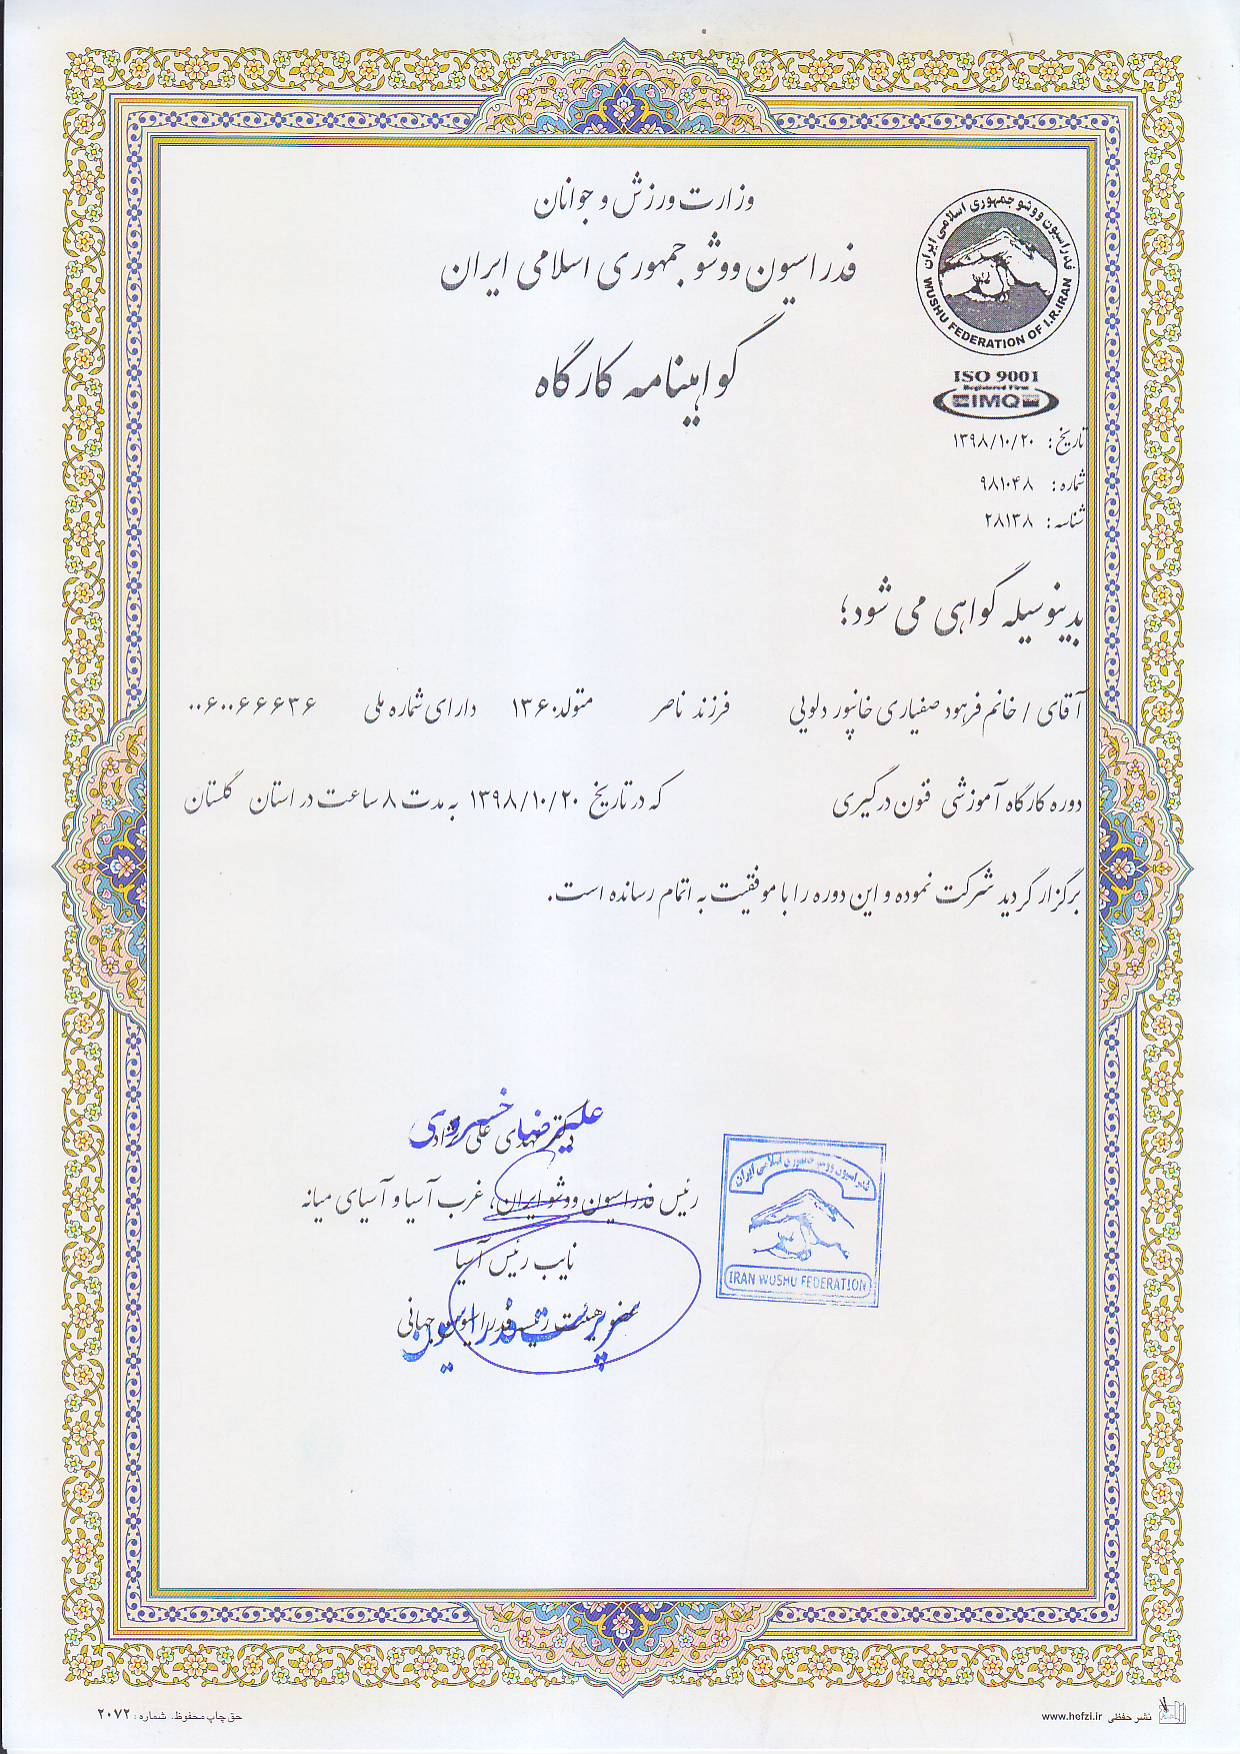 وزارت ورزش و جوانان
فدراسیون ووشو جمهوری اسلامی ایران
گواهینامه کارگاه
فدراسیون ووشو جمهوری اسلامی ایران
WUSHU FEDERATION OF I.R.IRAN
ISO 9001
Registered Firm
IMQ
تاریخ: ۱۳۹۸/۱۰/۲۰
شماره: ۹۸۱۰۴۸
شناسه: ۲۸۱۳۸
بدینوسیله گواهی می شود؛
آقای / خانم فرهود صفیاری خانپور دلویی فرزند ناصر متولد ۱۳۶۰ دارای شماره ملی ۰۰۶۰۰۶۶۶۳۶
دوره کارگاه آموزشی فنون درگیری که در تاریخ ۱۳۹۸/۱۰/۲۰ به مدت ۸ ساعت در استان گلستان
برگزار گردید شرکت نموده و این دوره را با موفقیت به اتمام رسانده است.
علیرضا خسروی
دکتر مهدی علی نژاد
رئیس فدراسیون ووشو ایران، غرب آسیا و آسیای میانه
نایب رئیس آسیا
عضو هیئت رئیسه فدراسیون جهانی
سرپرست فدراسیون
فدراسیون ووشو جمهوری اسلامی ایران
IRAN WUSHU FEDERATION
حق چاپ محفوظ. شماره: ۲۰۷۲
نشر حفظی www.hefzi.ir